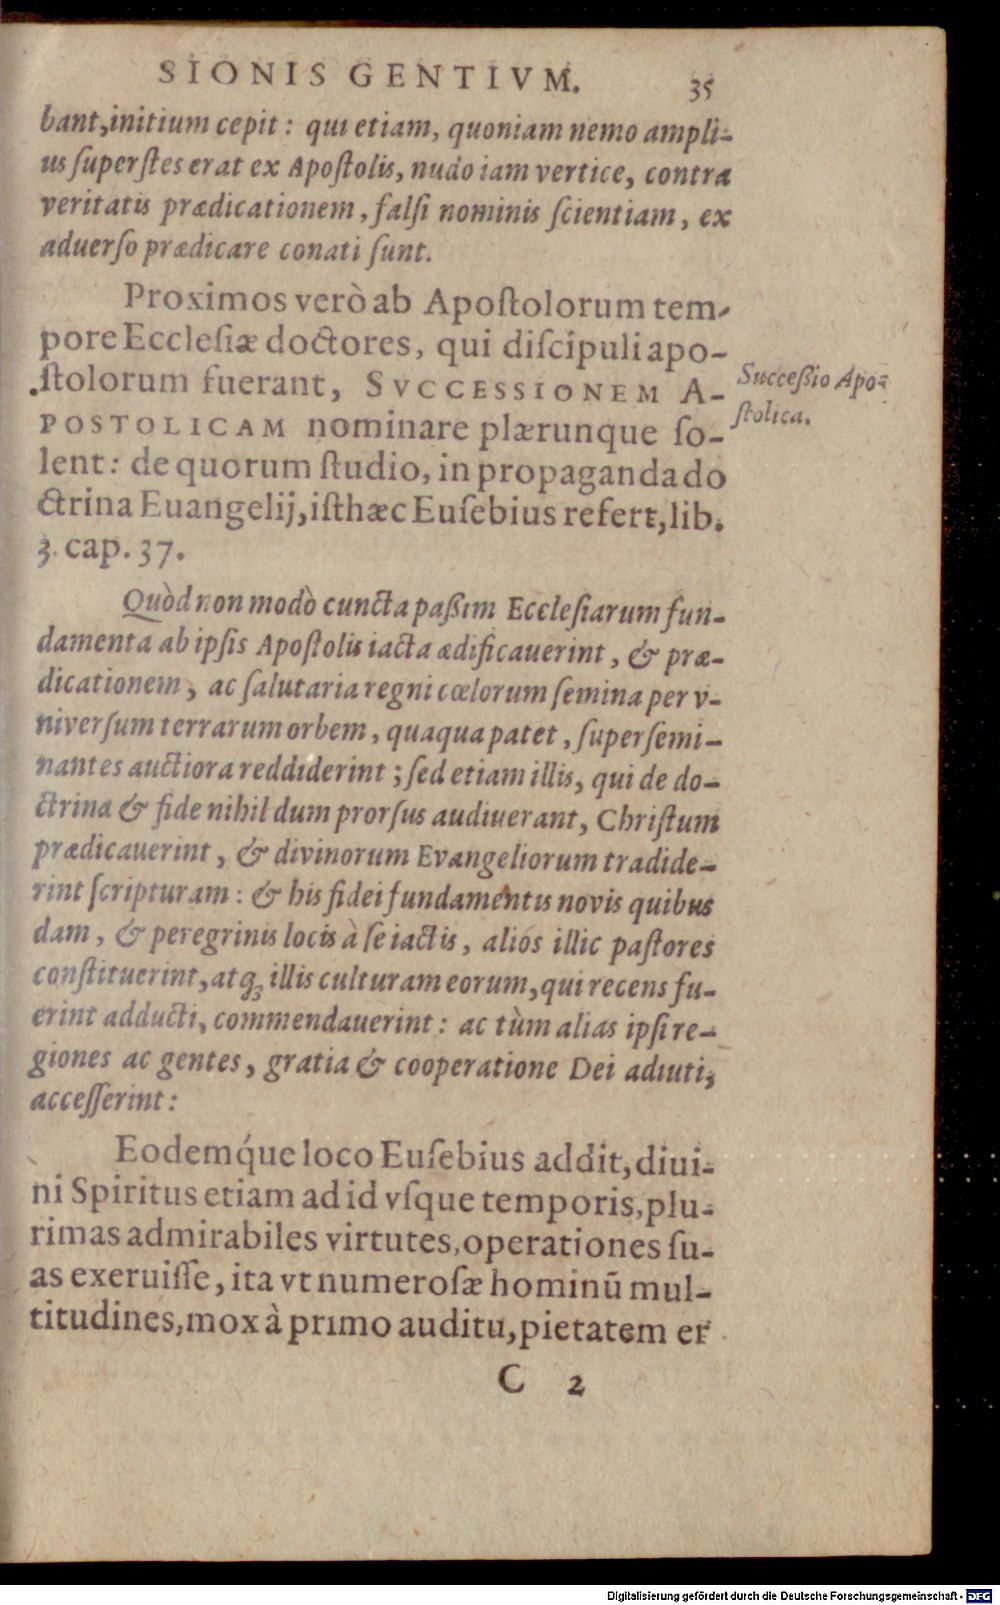 SIONIS GENTIVM. 35
bant, initium cepit: qui etiam, quoniam nemo ampli-
us ſuperſtes erat ex Apoſtolis, nudo iam vertice, contra
veritatis prædicationem, falſi nominis ſcientiam, ex
aduerſo prædicare conati ſunt.
Proximos verò ab Apoſtolorum tem-
pore Eccleſiæ doctores, qui diſcipuli apo-
ſtolorum fuerant, SVCCESSIONEM A-
POSTOLICAM nominare plærunque ſo-
lent: de quorum ſtudio, in propaganda do
ctrina Euangelij, iſthæc Euſebius refert, lib.
3. cap. 37.
Succeßio Apo-
ſtolica.
Quòd non modò cuncta paßim Eccleſiarum fun-
damenta ab ipſis Apoſtolis iacta ædificauerint, & præ-
dicationem, ac ſalutaria regni cœlorum ſemina per v-
niverſum terrarum orbem, quaqua patet, ſuperſemi-
nantes auctiora reddiderint; ſed etiam illis, qui de do-
ctrina & fide nihil dum prorſus audiuerant, Chriſtum
prædicauerint, & divinorum Evangeliorum tradide-
rint ſcripturam: & his fidei fundamentis novis quibus
dam, & peregrinis locis à ſe iactis, alios illic paſtores
conſtituerint, atq; illis culturam eorum, qui recens fu-
erint adducti, commendauerint: ac tùm alias ipſi re-
giones ac gentes, gratia & cooperatione Dei adiuti,
acceſſerint:
Eodemq́ue loco Euſebius addit, diui-
ni Spiritus etiam ad id vſque temporis, plu-
rimas admirabiles virtutes, operationes ſu-
as exeruiſſe, ita vt numeroſæ hominũ mul-
titudines, mox à primo auditu, pietatem er
C 2
Digitalisierung gefördert durch die Deutsche Forschungsgemeinschaft - DFG